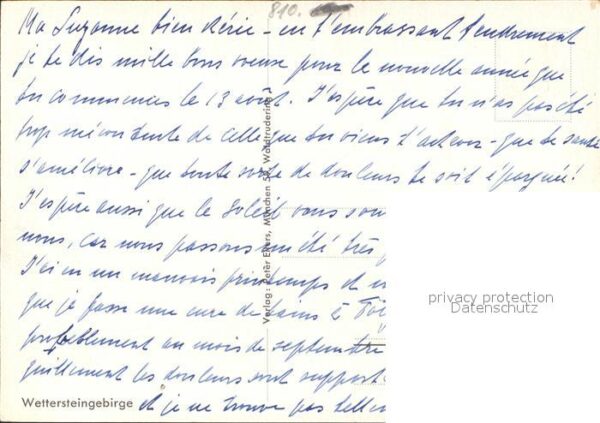 810.
Ma Suzanne bien chérie - en t'embrassant tendrement
je te dis mille bons voeux pour la nouvelle année que
tu commences le 13 août. J'espère que tu n'as pas été
trop mécontente de celle que tu viens d'achever - que ta santé
s'améliore - que toute sorte de douleurs te soit épargnée!
J'espère aussi que le Soleil vous
nous, car nous passons un été très
J'ai eu un mauvais printemps et
que je fasse une cure de bains à Töl
probablement au mois de septembre
les douleurs sont support
et je ne trouve pas tell
Wettersteingebirge
Verlag: Peter Ehlers, München SK, Waldtrudering
privacy protection
Datenschutz